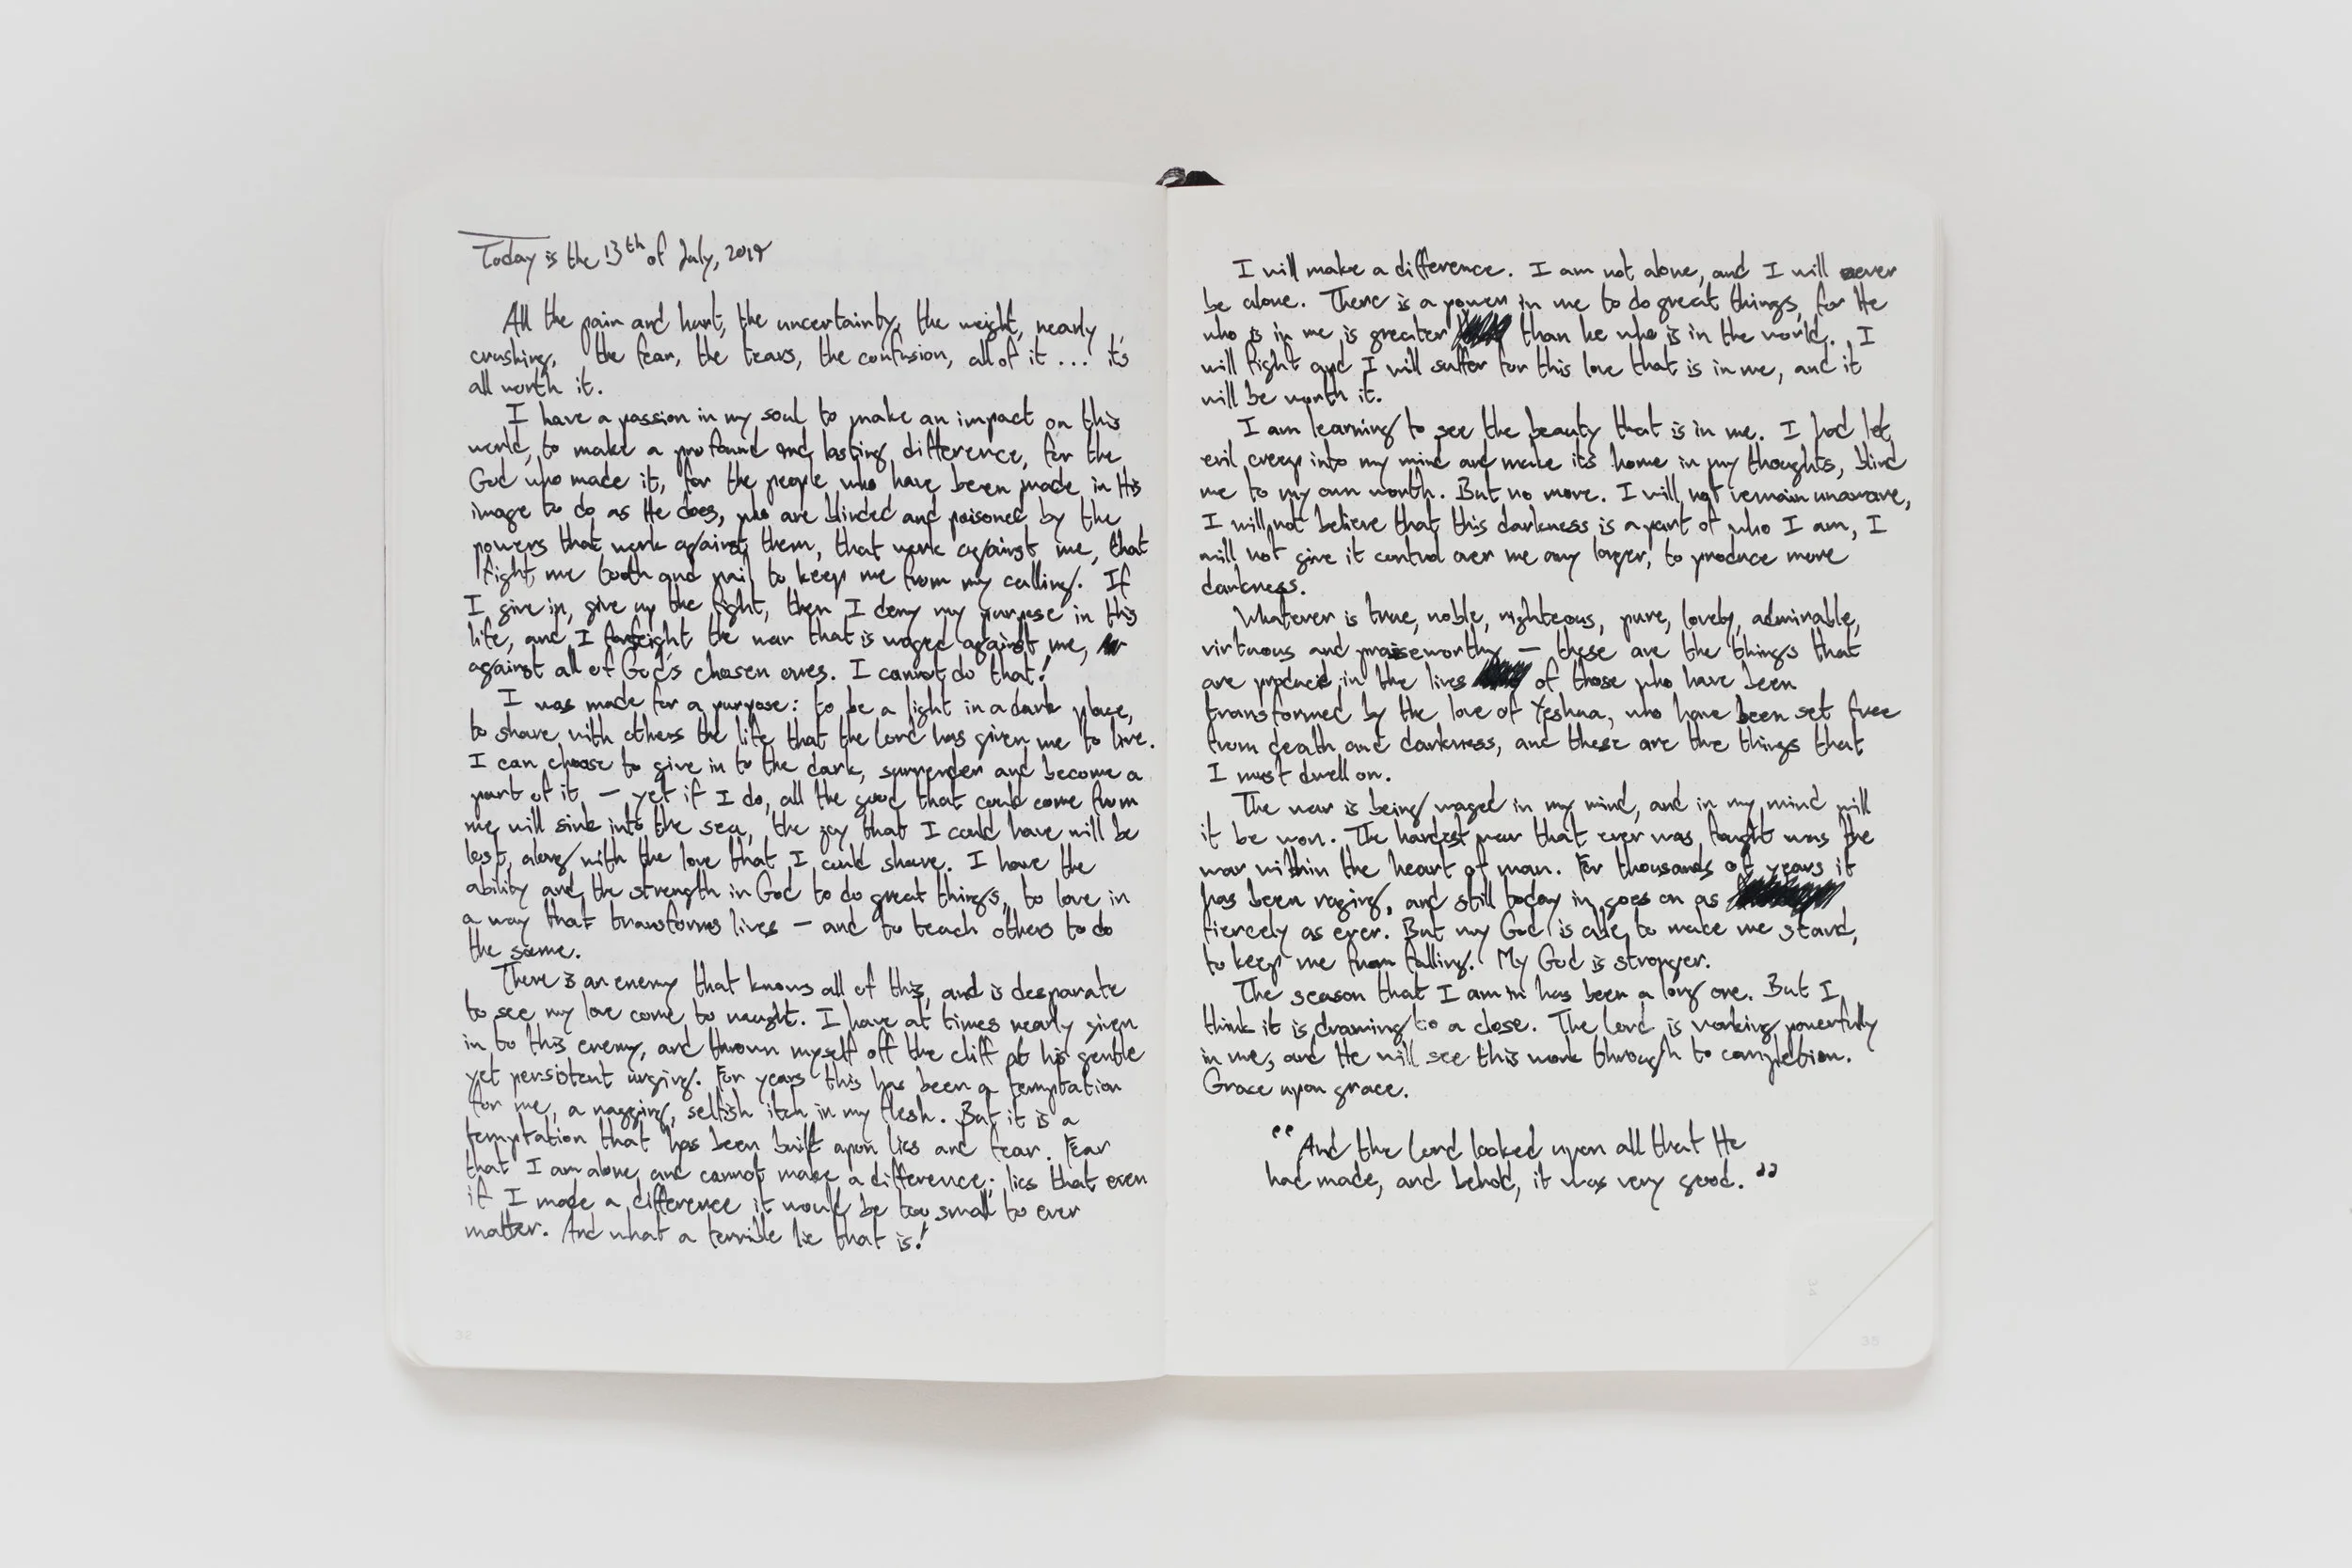 Today is the 13th of July, 2019
All the pain and hurt, the uncertainty, the weight, nearly
crushing, the fear, the tears, the confusion, all of it ... it's
all worth it.
I have a passion in my soul to make an impact on this
world, to make a profound and lasting difference, for the
God who made it, for the people who have been made in His
image to do as He does, who are blinded and poisoned by the
powers that work against them, that work against me, that
fight me tooth and nail to keep me from my calling. If
I give in, give up the fight, then I deny my purpose in this
life, and I forfeight the war that is waged against me,
against all of God's chosen ones. I cannot do that!
I was made for a purpose: to be a light in a dark place,
to share with others the life that the Lord has given me to live.
I can choose to give in to the dark, surrender and become a
part of it — yet if I do, all the good that could come from
me will sink into the sea, the joy that I could have will be
lost, along with the love that I could share. I have the
ability and the strength in God to do great things, to love in
a way that transforms lives — and to teach others to do
the same.
There is an enemy that knows all of this, and is desparate
to see my love come to naught. I have at times nearly given
in to this enemy, and thrown myself off the cliff at his gentle
yet persistent urging. For years this has been a temptation
for me, a nagging, selfish itch in my flesh. But it is a
temptation that has been built upon lies and fear. Fear
that I am alone and cannot make a difference; lies that even
if I made a difference it would be too small to ever
matter. And what a terrible lie that is!
32
I will make a difference. I am not alone, and I will never
be alone. There is a power in me to do great things, for He
who is in me is greater than he who is in the world. I
will fight and I will suffer for this love that is in me, and it
will be worth it.
I am learning to see the beauty that is in me. I had let
evil creep into my mind and make its home in my thoughts, blind
me to my own worth. But no more. I will not remain unaware,
I will not believe that this darkness is a part of who I am, I
will not give it control over me any longer, to produce more
darkness.
Whatever is true, noble, righteous, pure, lovely, admirable,
virtuous and praiseworthy — these are the things that
are produced in the lives of those who have been
transformed by the love of Yeshua, who have been set free
from death and darkness, and these are the things that
I must dwell on.
The war is being waged in my mind, and in my mind will
it be won. The hardest war that ever was fought was the
war within the heart of man. For thousands of years it
has been raging, and still today in goes on as
fiercely as ever. But my God is able to make me stand,
to keep me from falling. My God is stronger.
The season that I am in has been a long one. But I
think it is drawing to a close. The Lord is working powerfully
in me, and He will see this work through to completion.
Grace upon grace.
"And the Lord looked upon all that He
had made, and behold, it was very good."